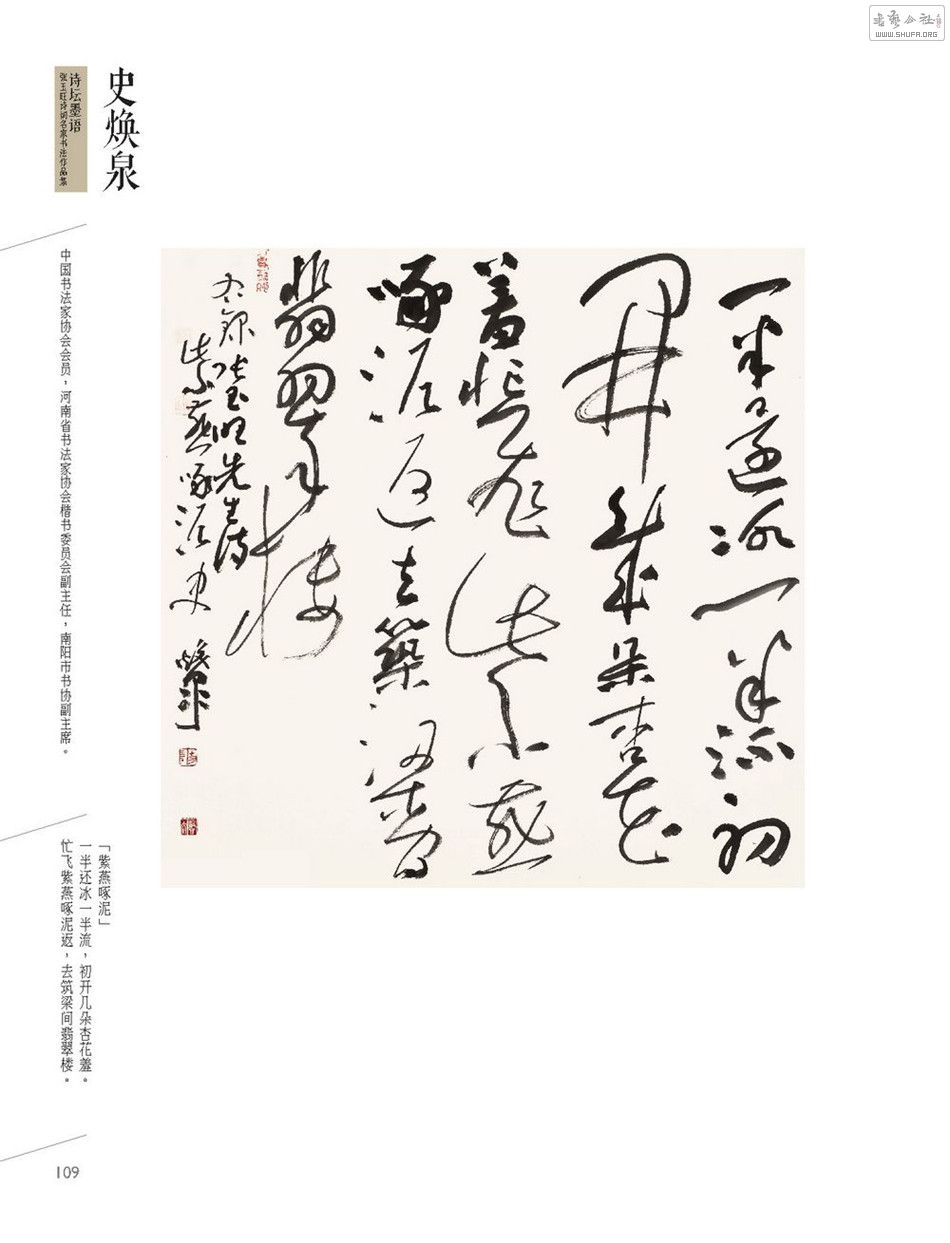 书艺公社
WWW.SHUFA.ORG
史焕泉
诗坛墨语
张玉旺诗词名家书法作品集
中国书法家协会会员，河南省书法家协会楷书委员会副主任，南阳市书协副主席。
一半还冰一半流初
开几朵杏花
羞忙飞紫燕
啄泥返去筑梁间
翡翠楼
右录张玉旺先生诗
紫燕啄泥史焕泉
「紫燕啄泥」
一半还冰一半流，初开几朵杏花羞。
忙飞紫燕啄泥返，去筑梁间翡翠楼。
109